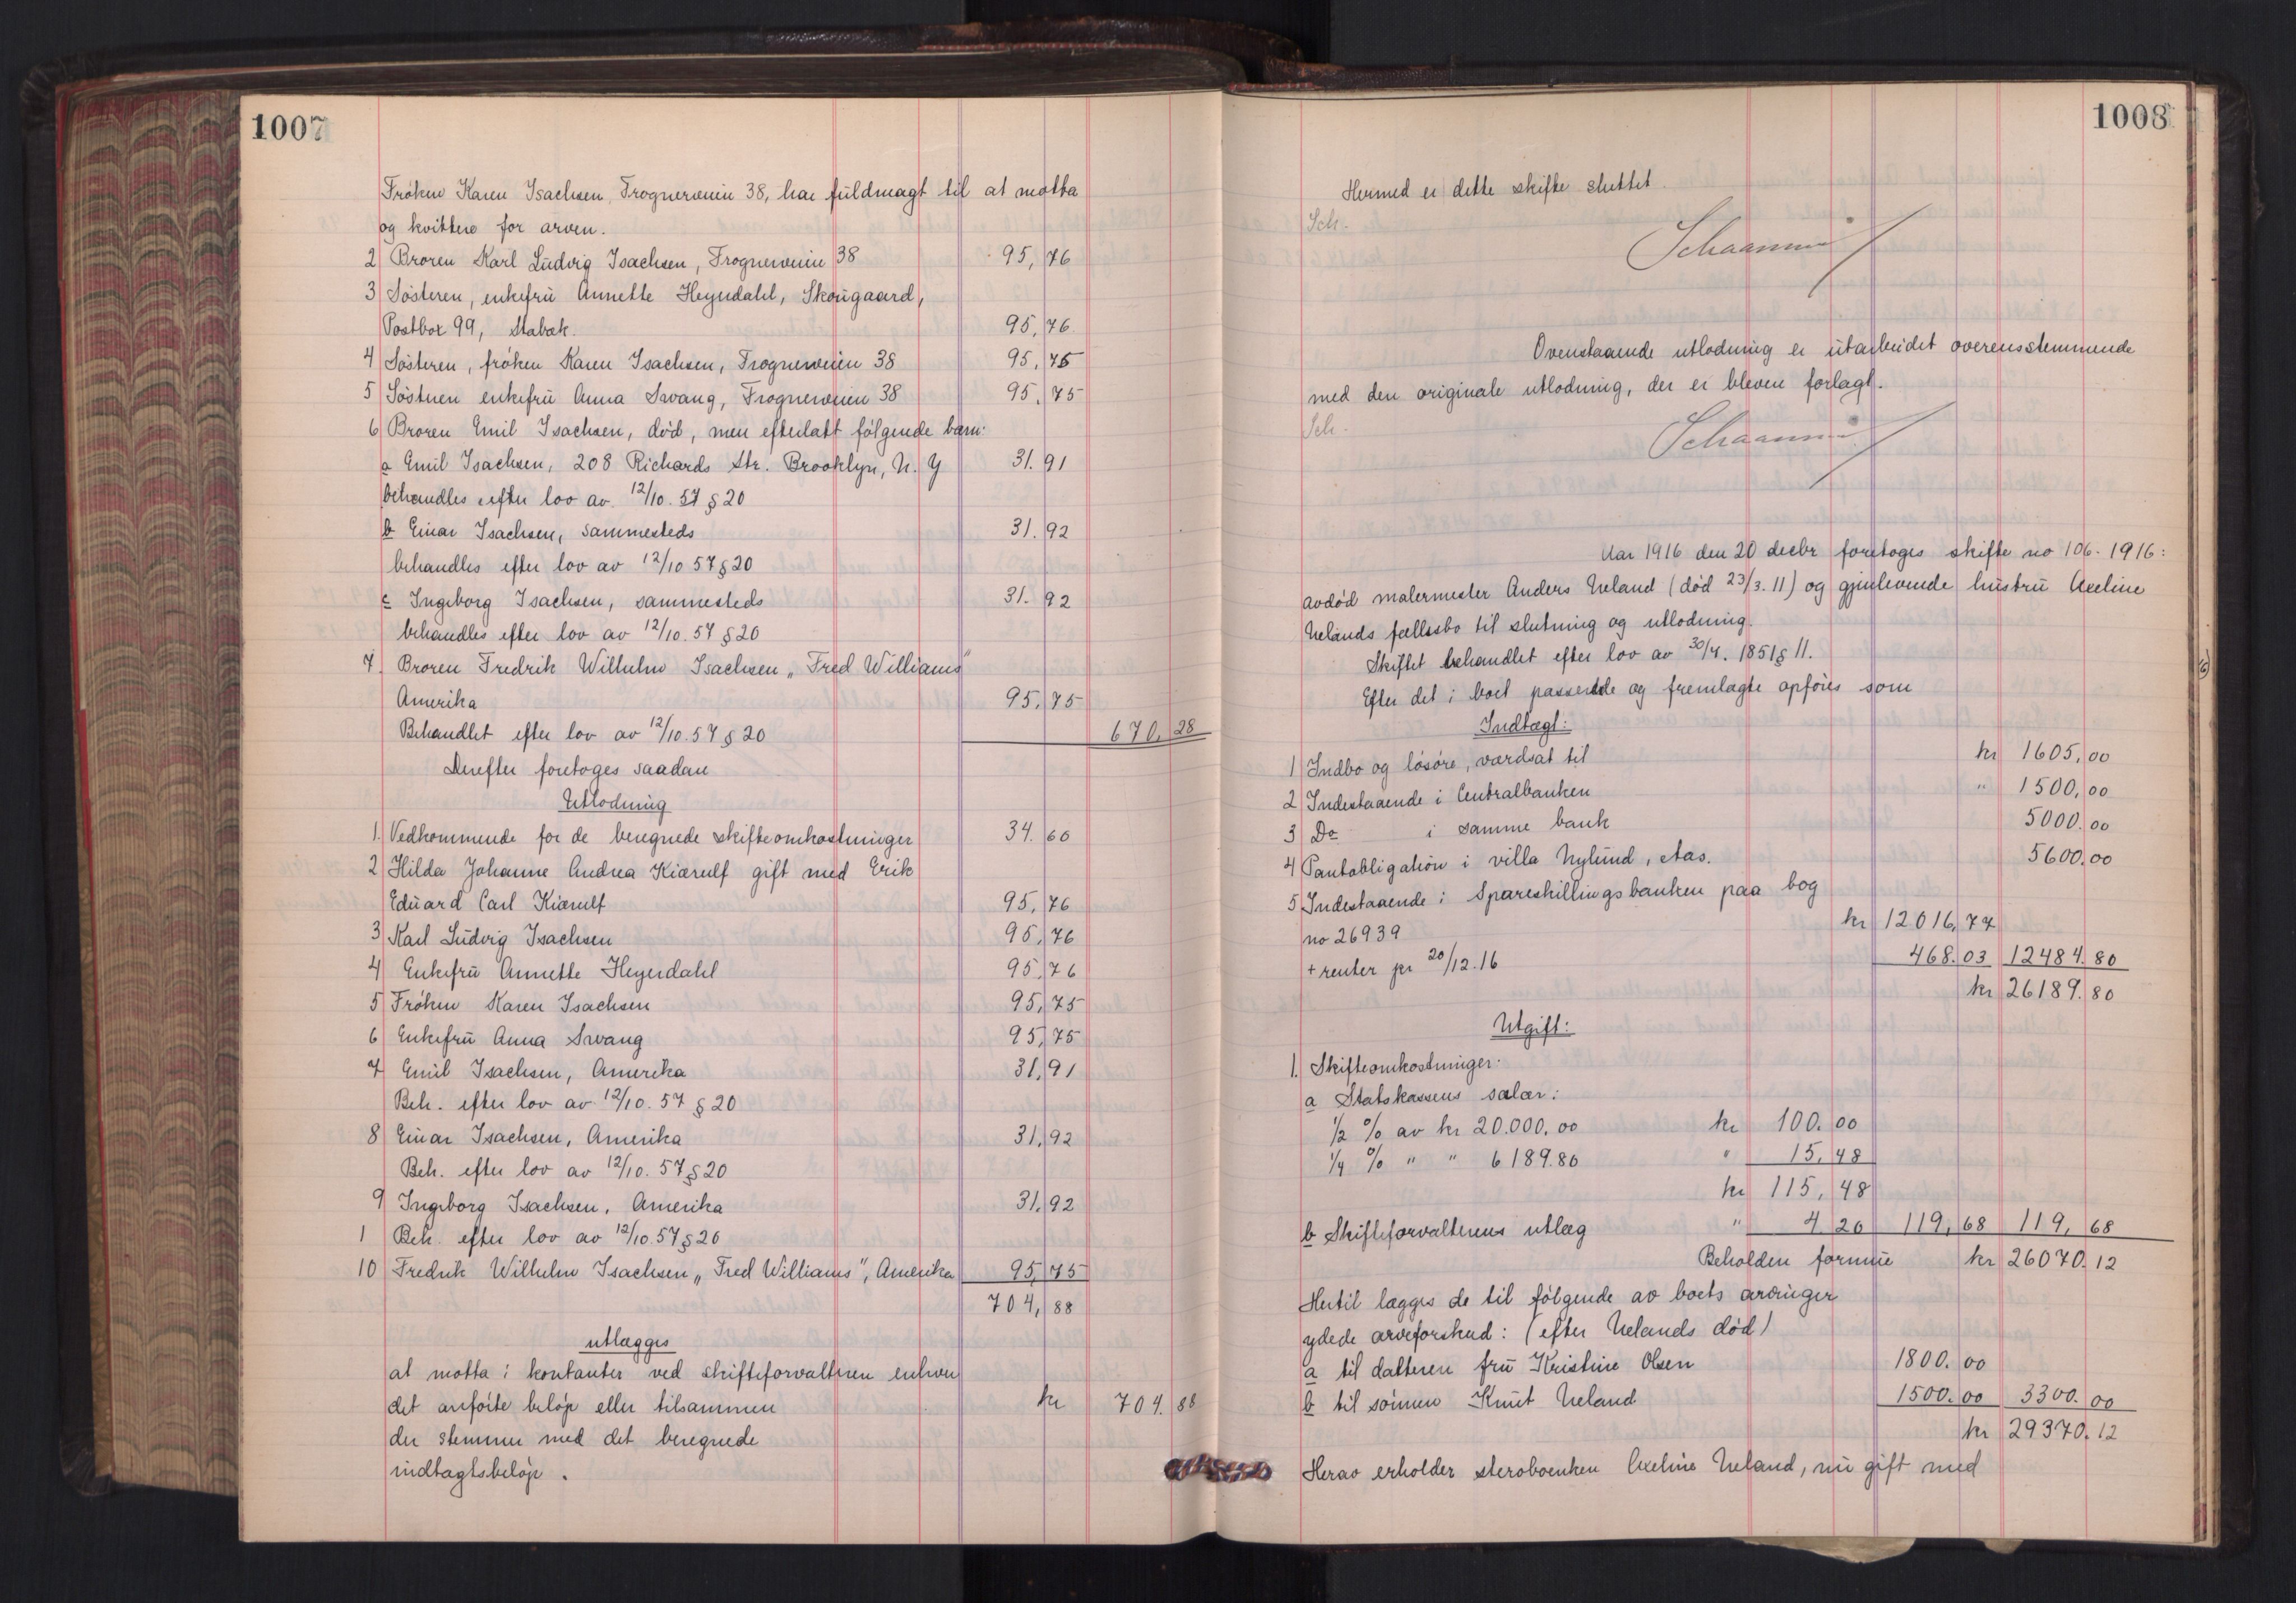 1007
Frøken Karen Isachsen, Frognerveien 38, har fuldmagt til at motta
og kvittere for arven.
2 Broren Karl Ludvig Isachsen, Frognerveien 38 95,76
3 Søsteren, enkefru Annette Heyerdahl, Skougaard,
Postbox 99, Stabæk. 95,76
4 Søsteren, frøken Karen Isachsen, Frognerveien 38 95,75
5 Søsteren enkefru Anna Svang, Frognerveien 38 95,75
6 Broren Emil Isachsen, død, men efterlatt følgende barn:
a Emil Isachsen, 208 Richards Str. Brooklyn, N. Y 31.91
behandles efter lov av 12/10.57 § 20
b Einar Isachsen, sammesteds 31.92
behandles efter lov av 12/10 57 § 20
c Ingeborg Isachsen, sammesteds 31.92
behandles efter lov av 12/10.57 § 20
7. Broren Fredrik Wilhelm Isachsen „Fred Williams"
Amerika 95,75
Behandlet efter lov av 12/10.57 § 20 670,28
Derefter foretoges saadan
Utlodning
1. Vedkommende for de beregnede skifteomkostninger 34.60
2 Hilda Johanne Andrea Kiærulf gift med Erik
Eduard Carl Kiærulf 95,76
3 Karl Ludvig Isachsen 95,76
4 Enkefru Annette Heyerdahl 95,76
5 Frøken Karen Isachsen 95,75
6 Enkefru Anna Svang 95,75
7 Emil Isachsen, Amerika 31,91
Beh. efter lov av 12/10.57 § 20
8 Einar Isachsen, Amerika 31,92
Beh. efter lov av 12/10.57 § 20
9 Ingeborg Isachsen, Amerika 31.92
1 Beh. efter lov av 12/10.57 § 20
10 Fredrik Wilhelm Isachsen „Fred Williams", Amerika 95,75
704,88
utlægges
at motta i kontanter ved skifteforvalteren enhver
det anførte beløp eller tilsammen kr 704.88
der stemmer med det beregnede
indtægtsbeløp.
1008
Hermed er dette skifte sluttet.
Sch.
Ovenstaaende utlodning er utarbeidet overensstemmende
med den originale utlodning, der er bleven forlagt.
Sch.
Aar 1916 den 20 decbr foretoges skifte no 106-1916:
avdød malermester Anders Ueland (død 23/3.11) og gjenlevende hustru Axeline
Uelands fællesbo til slutning og utlodning.
Skiftet behandlet efter lov av 30/7.1851 § 11.
Efter det i boet passerede og fremlagte opføres som
Indtægt:
1 Indbo og løsøre, værdsat til kr 1605,00
2 Indestaaende i Centralbanken " 1500,00
3 Do i samme bank 5000.00
4 Pantobligation i villa Nylund, Aas. 5600.00
5 Indestaaende i Spareskillingsbanken paa bog
no 26939 kr 12016,77
+ renter pr 20/12.16 468.03 12484.80
kr 26189.80
Utgift:
1. Skifteomkostninger:
a Statskassens salær:
1/2 % av kr 20.000.00 kr 100.00
1/4 % " " 6189.80 " 15,48
kr 115,48
b Skifteforvalterens utlæg " 4 20 119,68 119,68
Beholden formue kr 26070.12
Hertil lægges de til følgende av boets arvinger
ydede arveforskud: (efter Uelands død)
a til datteren fru Kristine Olsen 1800.00
b til sønnen Knut Ueland 1500.00 3300.00
kr 29370.12
Herav erholder stervboenken Axeline Ueland, nu gift med